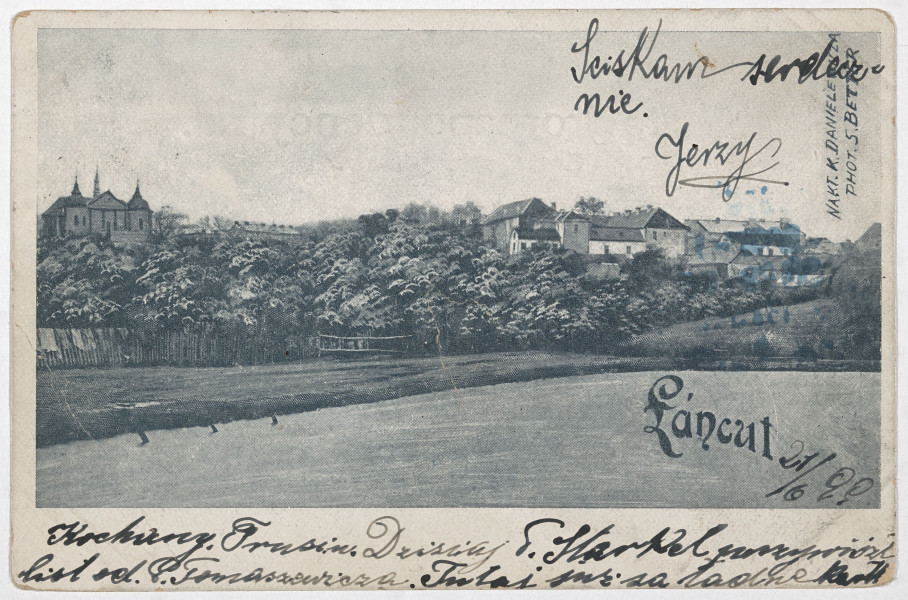 Sciskam serdecz-
nie.
Jerzy
NAKT. K. DANIELEWICZA
PHOT. S. BETTER
Łáncut
21/6 99
Kochany. Trusiu. Dzisiaj P. Starkel przywiózł
list od. P. Tomaszewicza. Tutaj już są ładne Kartk